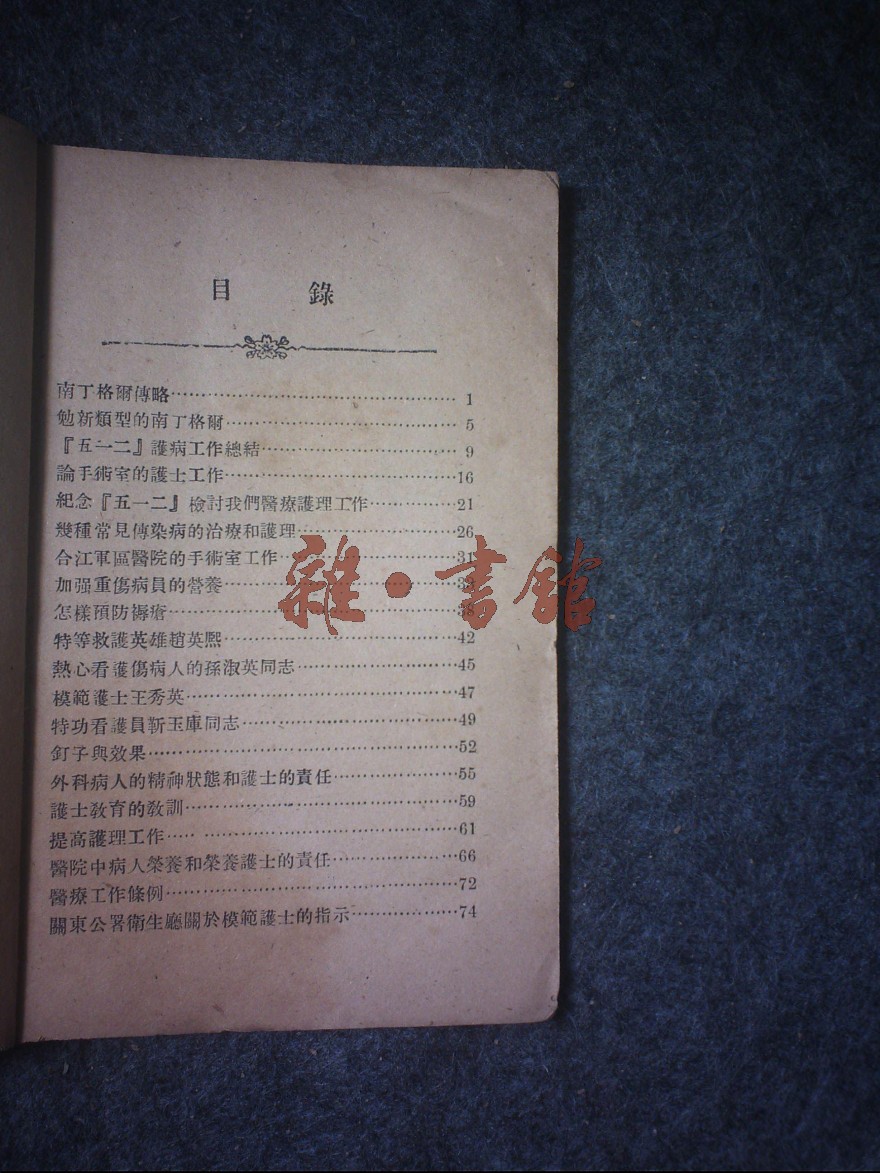 目錄
南丁格爾傳略 1
勉新類型的南丁格爾 5
『五一二』護病工作總結 9
論手術室的護士工作 16
紀念『五一二』檢討我們醫療護理工作 21
幾種常見傳染病的治療和護理 26
合江軍區醫院的手術室工作 31
加强重傷病員的營養
怎樣預防褥瘡 38
特等救護英雄趙英熙 42
熱心看護傷病人的孫淑英同志 45
模範護士王秀英 47
特功看護員靳玉庫同志 49
釘子與效果 52
外科病人的精神狀態和護士的責任 55
護士教育的教訓 59
提高護理工作 61
醫院中病人榮養和榮養護士的責任 66
醫療工作條例 72
關東公署衛生廳關於模範護士的指示 74
雜·書館